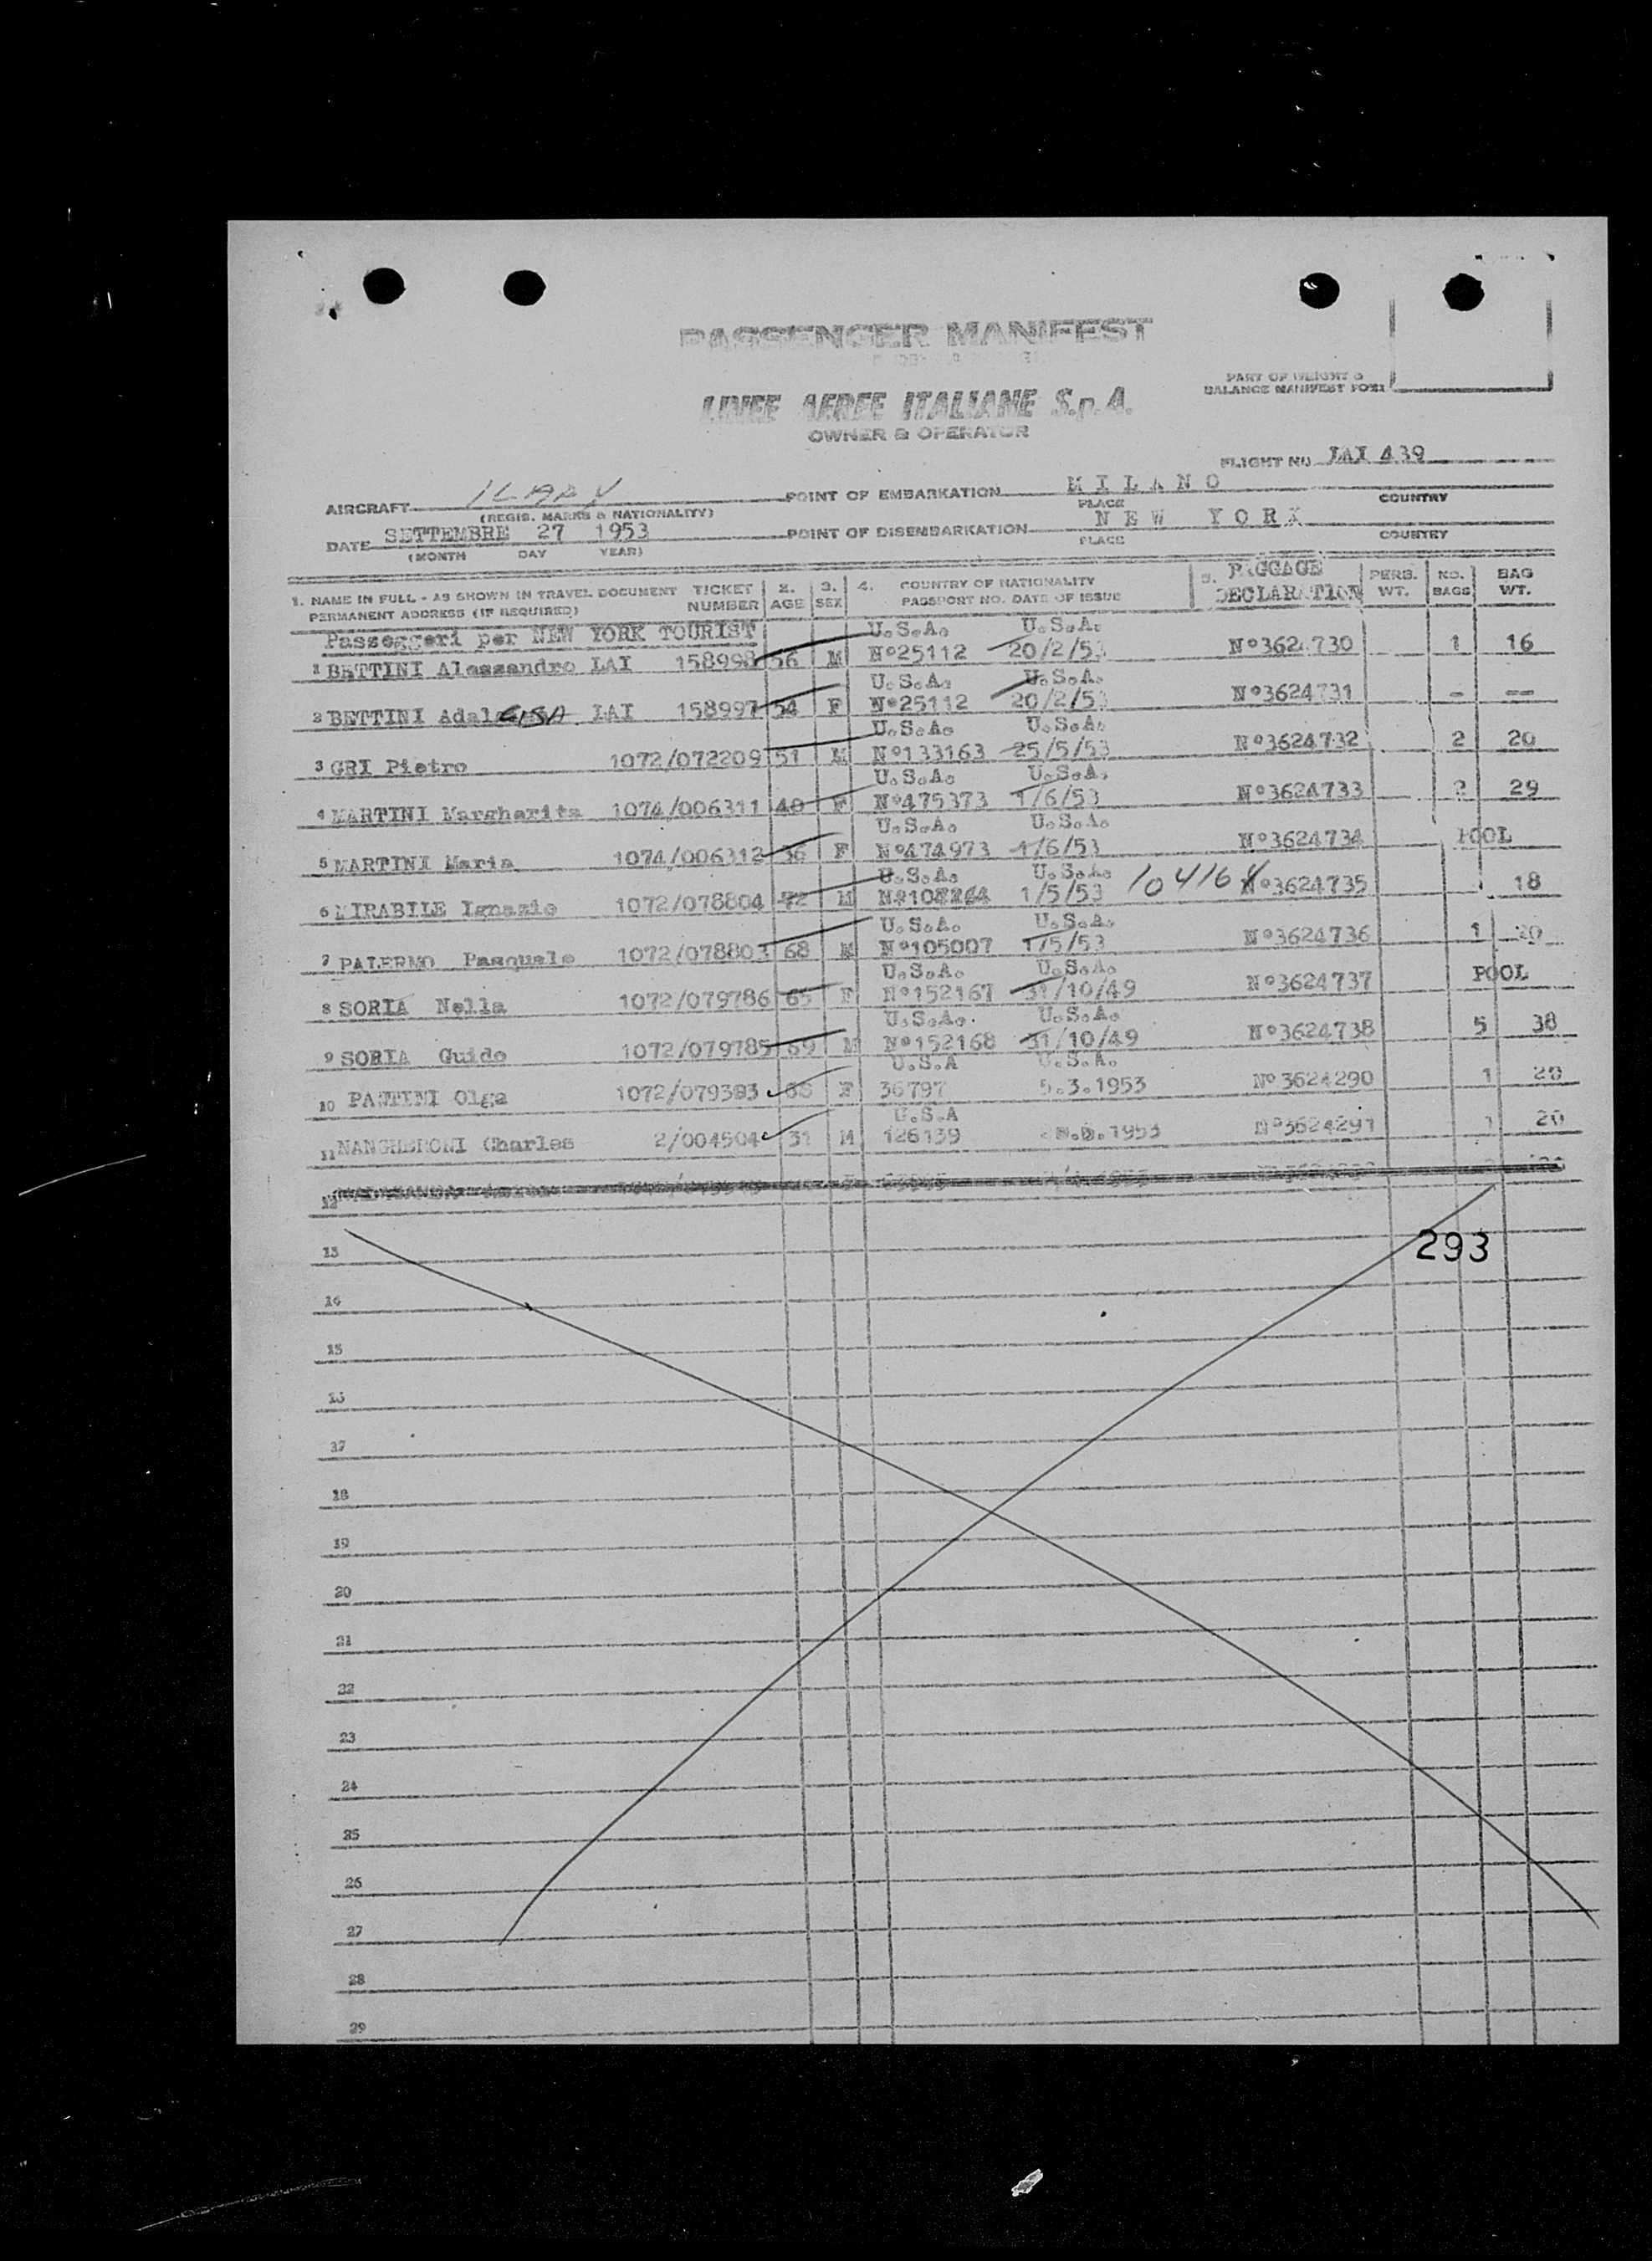 PASSENGER MANIFEST
LINEE AEREE ITALIANE S.p.A.
OWNER & OPERATOR
PART OF WEIGHT &
BALANCE MANIFEST FORM
FLIGHT NO LAI 439
AIRCRAFT POINT OF EMBARKATION MILANO
(REGIS. MARKS & NATIONALITY) PLACE COUNTRY
DATE SETTEMBRE 27 1953 POINT OF DISEMBARKATION NEW YORK
(MONTH DAY YEAR) PLACE COUNTRY
1. NAME IN FULL - AS SHOWN IN TRAVEL DOCUMENT TICKET 2. 3. 4. COUNTRY OF NATIONALITY 5. BAGGAGE PERS. NO. BAG
PERMANENT ADDRESS (IF REQUIRED) NUMBER AGE SEX PASSPORT NO. DATE OF ISSUE DECLARATION WT. BAGS WT.
Passeggeri per NEW YORK TOURIST U.S.A. U.S.A.
1 BETTINI Alessandro LAI 158998 56 M Nº25112 20/2/53 Nº3624730 1 16
U.S.A. U.S.A.
2 BETTINI AdalGISA LAI 158997 54 F Nº25112 20/2/53 Nº3624731 - --
U.S.A. U.S.A.
3 GRI Pietro 1072/072209 51 M Nº133163 25/5/53 Nº3624732 2 20
U.S.A. U.S.A.
4 MARTINI Margherita 1074/006311 F Nº475373 1/6/53 Nº3624733 2 29
U.S.A. U.S.A.
5 MARTINI Maria 1074/006312 36 F Nº474973 1/6/53 Nº3624734 POOL
U.S.A. U.S.A.
6 MIRABILE Ignazio 1072/078804 72 M 1/5/53 104164 Nº3624735 18
U.S.A. U.S.A.
7 PALERMO Pasquale 1072/078803 68 M Nº105007 1/5/53 Nº3624736 1 20
U.S.A. U.S.A.
8 SORIA Nella 1072/079786 65 F Nº152167 31/10/49 Nº3624737 POOL
U.S.A. U.S.A.
9 SORIA Guido 1072/079785 69 M Nº152168 31/10/49 Nº3624738 5 38
U.S.A U.S.A.
10 PANTINI Olga 1072/079383 F 36797 5.3.1953 Nº 3624290 1 20
U.S.A
11 NANGHERONI Charles 2/004504 31 M 126139 1953 Nº3624291 1 20
12
13
293
14
15
16
17
18
19
20
21
22
23
24
25
26
27
28
29